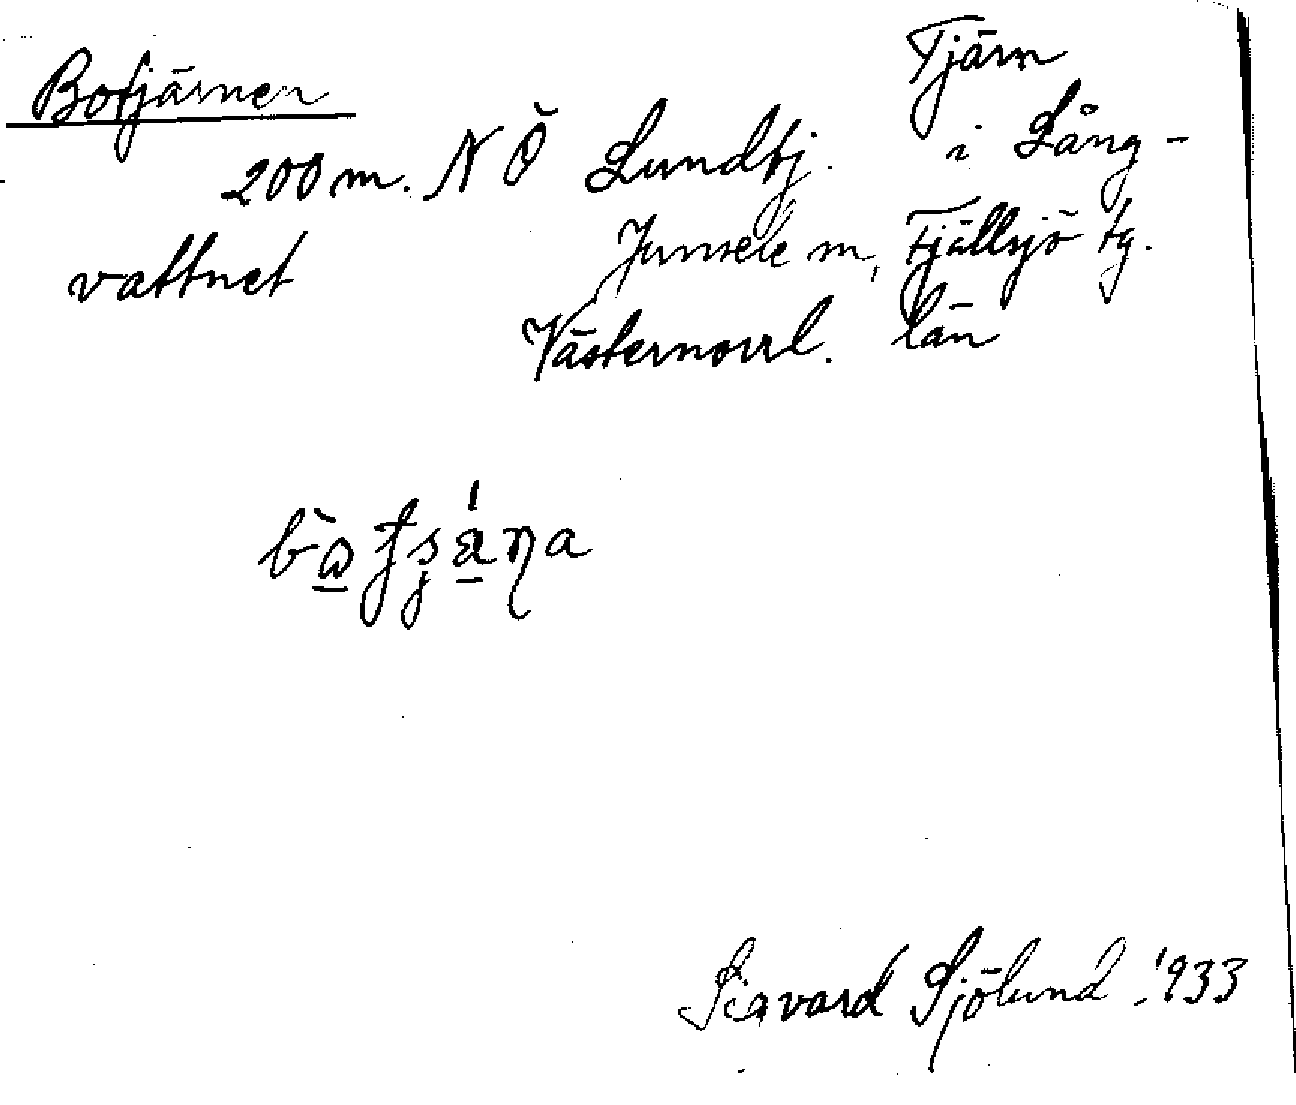 Botjärnen
Tjärn
200 m. NÖ Lundtj. i Lång-
vattnet
Junsele m, Fjällsjö tg.
Västernorrl. län
Sigvard Sjölund 1933